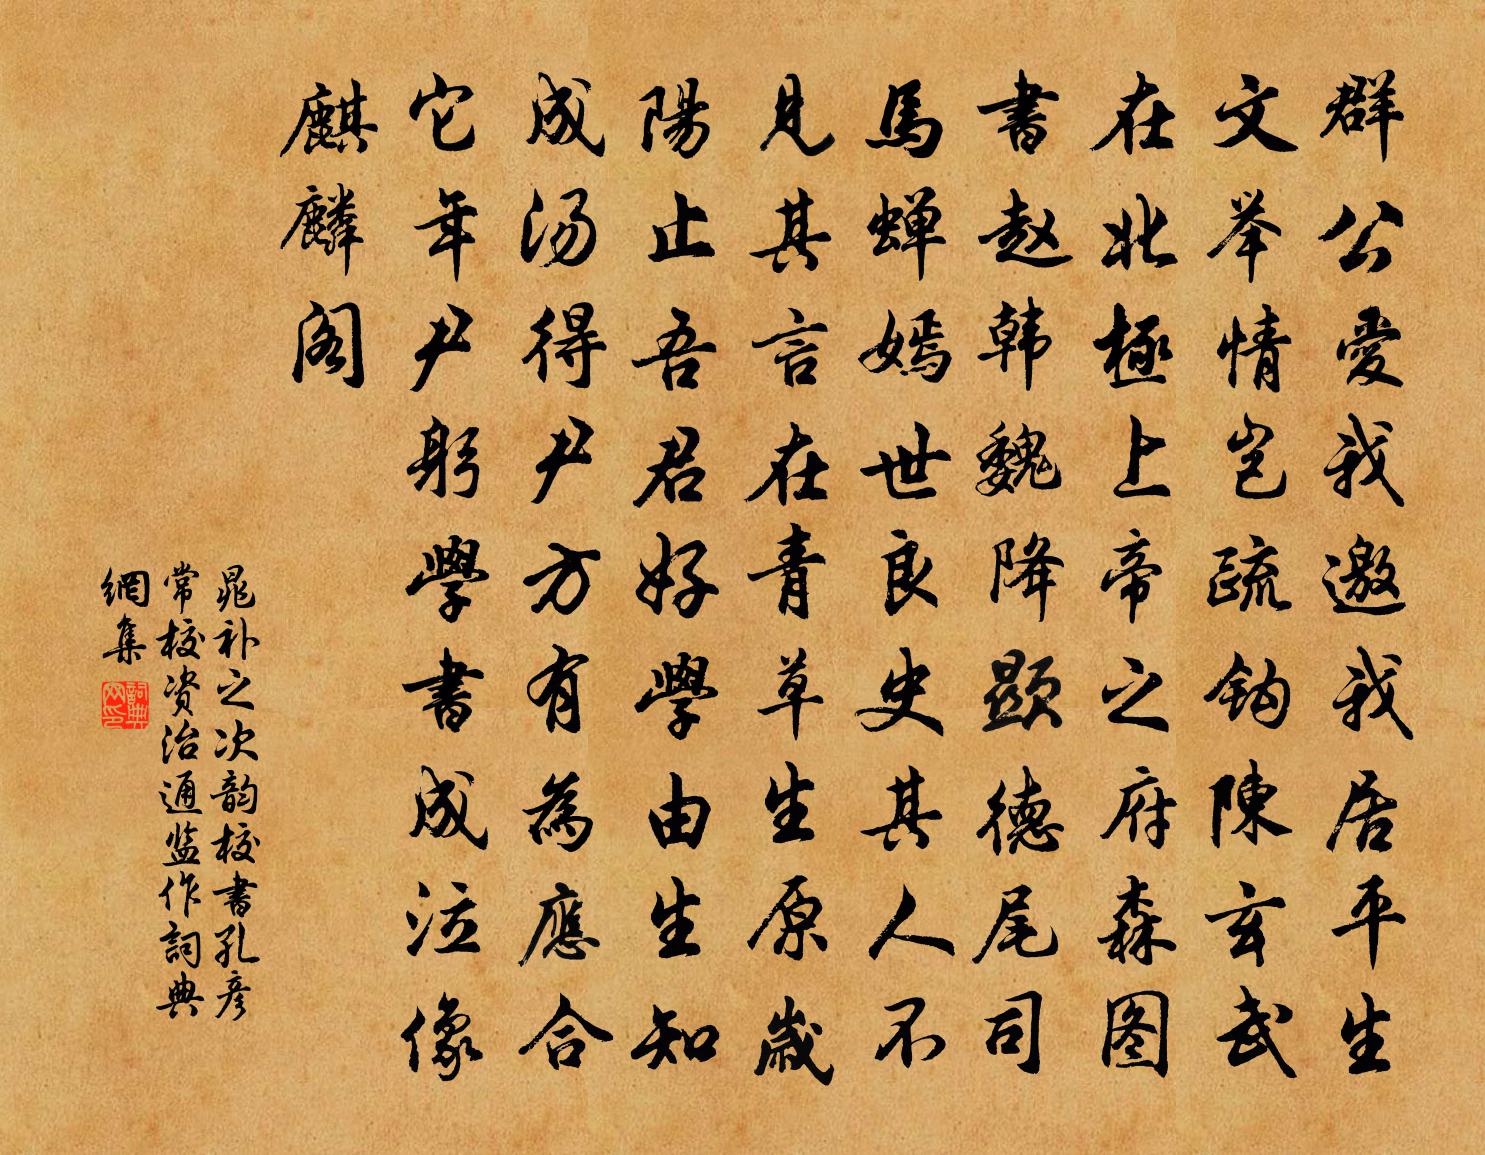 群公愛我邀我居平生
文举情岂疏钩陳玄武
在北極上帝之府森图
書赵韩魏降顕德尾司
馬蝉嫣世良史其人不
見其言在青草生原歲
陽止吾君好學由生知
成汤得尹方有為應合
它年尹躬學書成泣像
麒麟阁
晁补之次韵校書孔彦
常校资治通监作詞典
網集
詞典网印